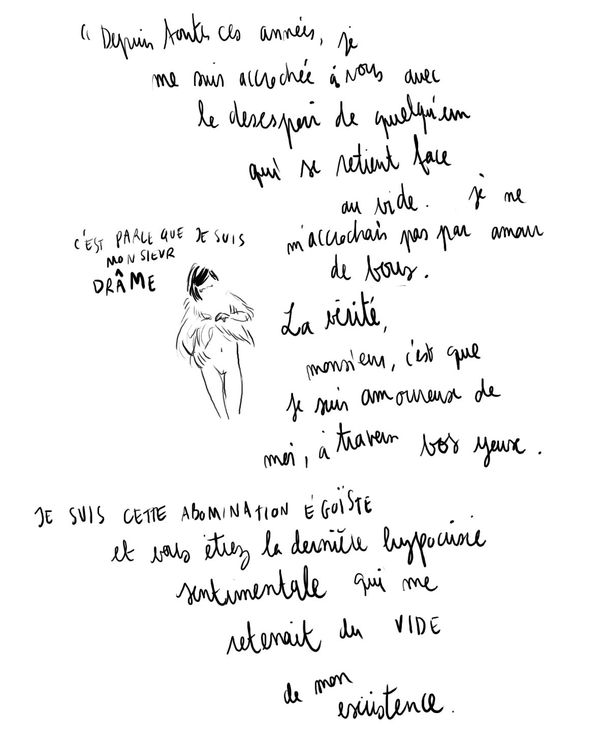 " Depuis toutes ces années, je
me suis accrochée à vous avec
le desespoir de quelqu'un
qui se retient face
au vide. je ne
m'accrochais pas par amour
de vous.
C'EST PARCE QUE JE SUIS
MONSIEUR
DRÂME
La vérité,
monsieur, c'est que
je suis amoureuse de
moi, à travers vos yeux.
JE SUIS CETTE ABOMINATION ÉGOÏSTE
et vous étiez la dernière hypocrisie
sentimentale qui me
retenait du VIDE
de mon
existence.